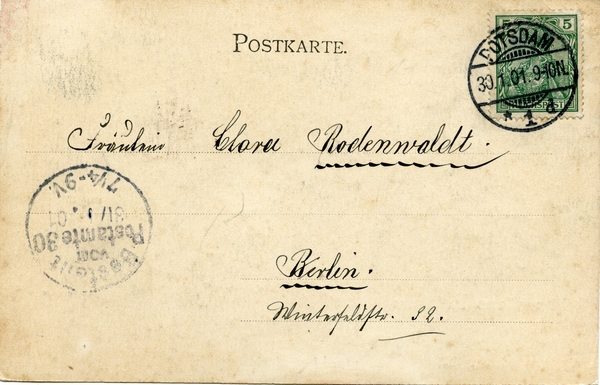 POSTKARTE.
5
POTSDAM
30.1.01. 9-10N.
* 1 d
Fräulein Clara Rodenwaldt.
7¼-9V.
31/1.01
Bestellt
vom
Postamte 30
Berlin.
Winterfeldstr. 32.